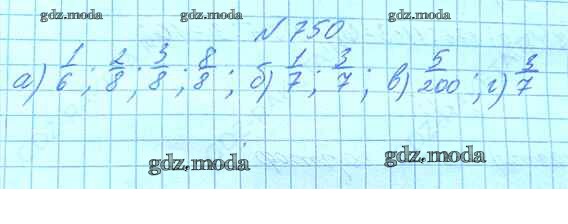 gdz.moda gdz.moda gdz.moda
№ 750
а) 1/6; 2/8; 3/8; 8/8; б) 1/7; 3/7; в) 5/200; г) 3/7
gdz.moda gdz.moda